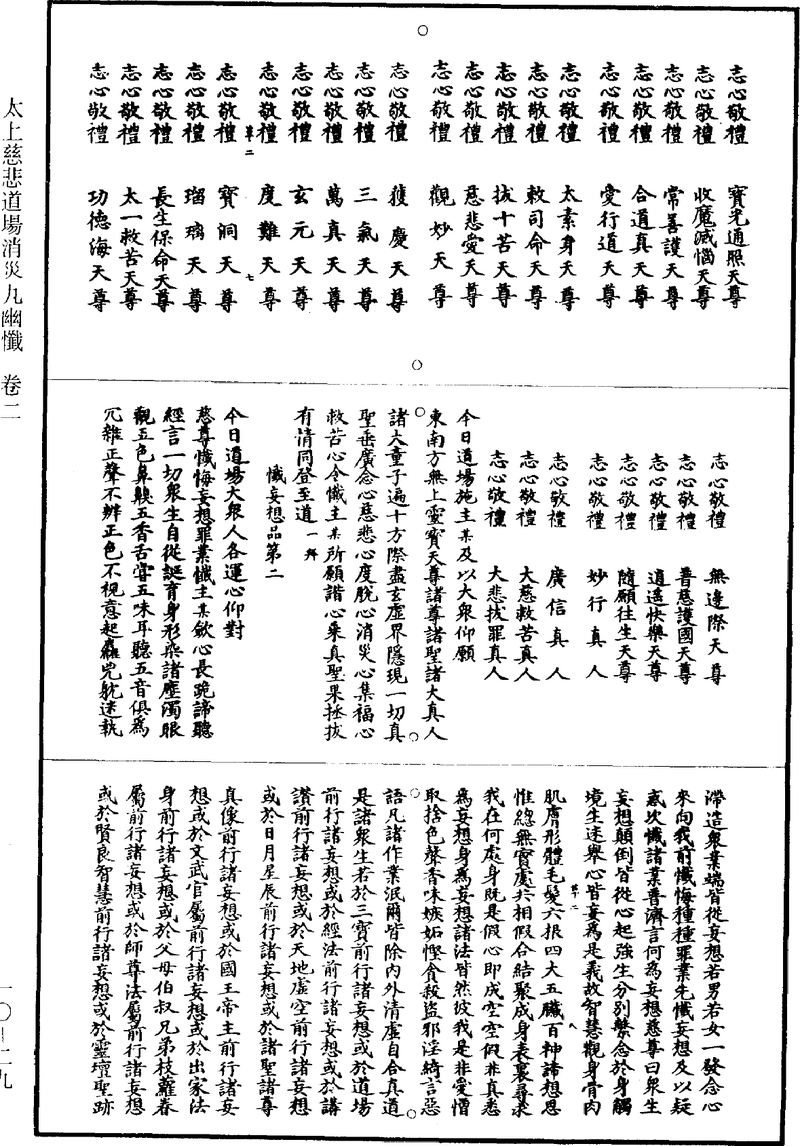 太上慈悲道場消災九幽懺　卷二
志心敬禮　寶光通照天尊
志心敬禮　收魔滅惱天尊
志心敬禮　常善護天尊
志心敬禮　合道真天尊
志心敬禮　愛行道天尊
志心敬禮　太素身天尊
志心敬禮　敕司命天尊
志心敬禮　拔十苦天尊
志心敬禮　慈悲愛天尊
志心敬禮　觀妙天尊
志心敬禮　獲慶天尊
志心敬禮　三氣天尊
志心敬禮　萬真天尊
志心敬禮　玄元天尊
志心敬禮　度難天尊
草二　七
志心敬禮　寶洞天尊
志心敬禮　瑠璃天尊
志心敬禮　長生保命天尊
志心敬禮　太一救苦天尊
志心敬禮　功德海天尊
志心敬禮　無邊際天尊
志心敬禮　普慈護國天尊
志心敬禮　逍遙快樂天尊
志心敬禮　隨願往生天尊
志心敬禮　妙行真人
志心敬禮　廣信真人
志心敬禮　大慈救苦真人
志心敬禮　大悲拔罪真人
今日道場施主某及以大衆仰願
東南方無上靈寶天尊諸尊諸聖諸大真人
諸大童子遍十方際盡玄虛界隱現一切真
聖垂廣念心慈悲心度脫心消災心集福心
救苦心令懺主某所願諧心乗真聖果拯拔
有情同登至道一拜
懺妄想品第二
今日道場大衆人各運心仰對
慈尊懺悔妄想罪業懺主某歛心長跪諦聽
經言一切衆生自從誕育身形染諸塵濁眼
觀五色鼻齅五香舌甞五味耳聽五音俱為
冗雜正聲不辨正色不視意起麤咒躭迷執
滯造衆業端皆從妄想若男若女一發念心
來向我前懺悔種種罪業先懺妄想及以疑
惑次懺諸業普濟言何為妄想慈尊曰衆生
妄想顛倒皆從心起強生分別繫念於身觸
境生迷舉心皆妄為是義故智慧觀身骨肉
草二　八
肌膚形體毛髮六根四大五臟百神諦想思
惟總無實處共相假合結聚成身表裏尋求
我在何處身既是假心即成空空假非真悉
為妄想身為妄想諸法皆然彼我是非愛憎
取捨色聲香味嫉妬慳貪殺盜邪淫綺言惡
語凡諸作業泯爾皆除内外清虛自合真道
是諸衆生若於三寶前行諸妄想或於道場
前行諸妄想或於經法前行諸妄想或於講
讚前行諸妄想或於天地虛空前行諸妄想
或於日月星辰前行諸妄想或於諸聖諸尊
真像前行諸妄想或於國王帝主前行諸妄
想或於文武官屬前行諸妄想或於出家法
身前行諸妄想或於父母伯叔兄弟枝蘿眷
屬前行諸妄想或於師尊法屬前行諸妄想
或於賢良智慧前行諸妄想或於靈壇聖跡
一〇—二九